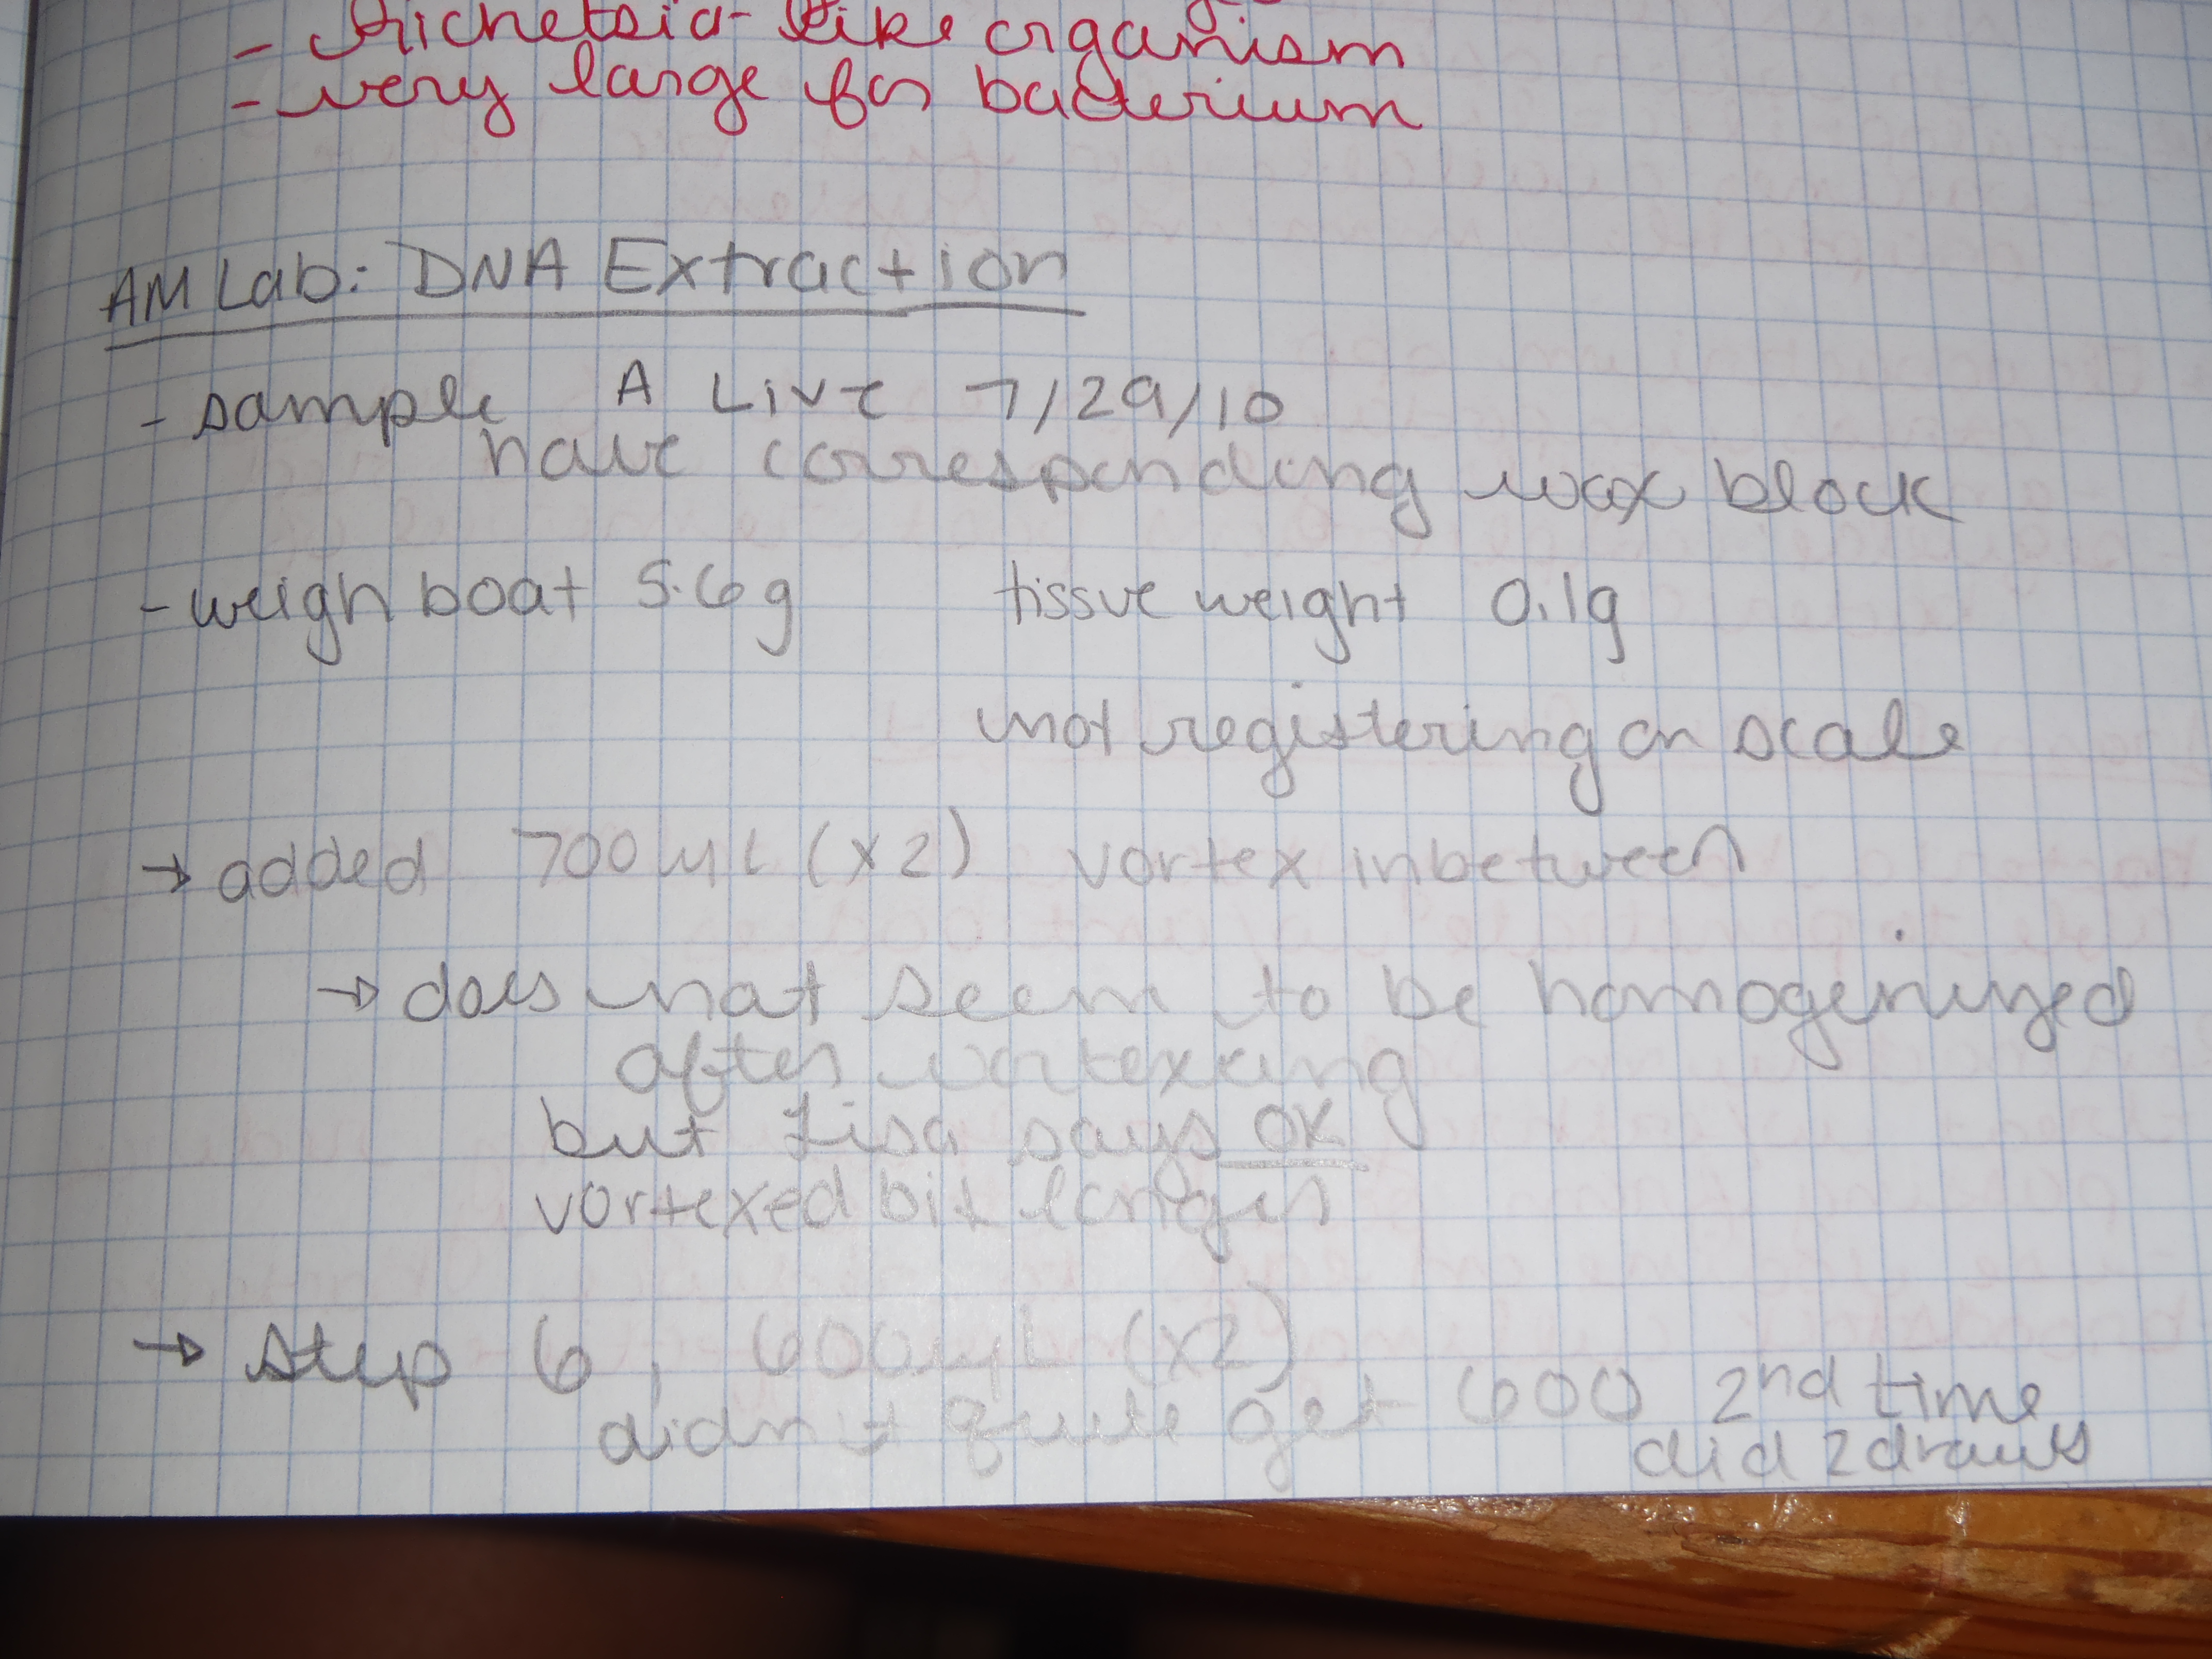 - Richetsia-like organism
- very large for bacterium
AM Lab: DNA Extraction
- sample A Live 7/29/10
have corresponding wax block
- weigh boat 5.6g tissue weight 0.1g
not registering on scale
→ added 700 µL (x2) vortex inbetween
→ does not seem to be homogenized
after vortexxing
but Lisa says OK
vortexed bit longer
→ Step 6, 600 µL (x2)
didn't quite get 600 2nd time
did 2 draws